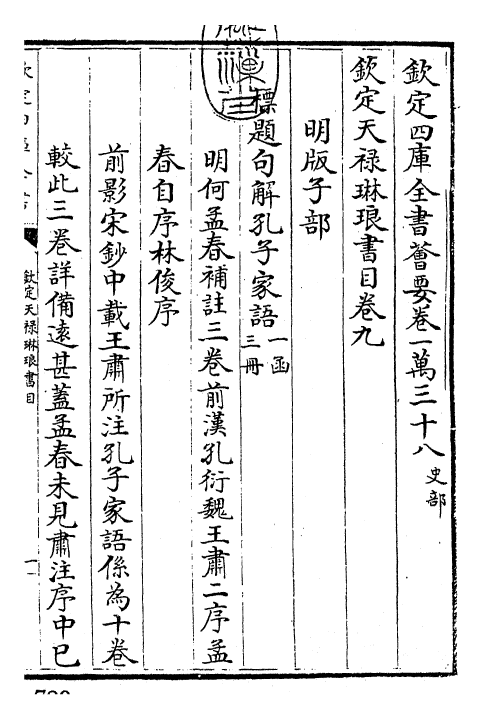 欽定四庫全書薈要卷一萬三十八 史部
欽定天祿琳琅書目卷九
明版子部
標題句解孔子家語 一函
三冊
明何孟春補註三卷前漢孔衍魏王肅二序孟
春自序林俊序
前影宋鈔中載王肅所注孔子家語係為十卷
較此三卷詳備遠甚蓋孟春未見肅注序中已
欽定天祿琳琅書目
一